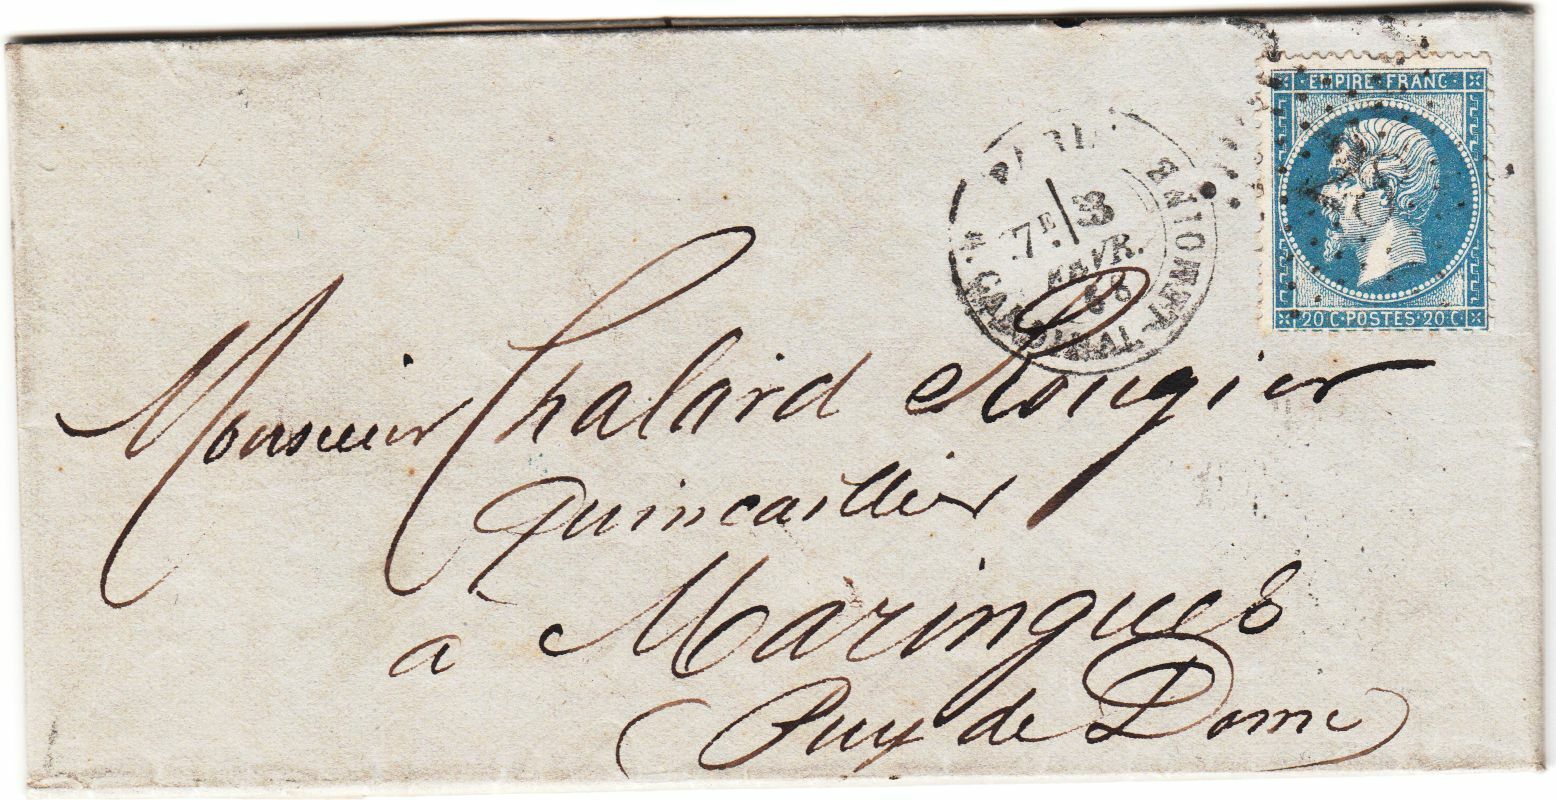 EMPIRE FRANC
20 C · POSTES · 20 C
PARIS
7E 3
FEVR.
66
R. CARDINAL-LEMOINE
25
Monsieur Chalard Rougier
Quincaillier
a Maringues
(Puy de Dome)